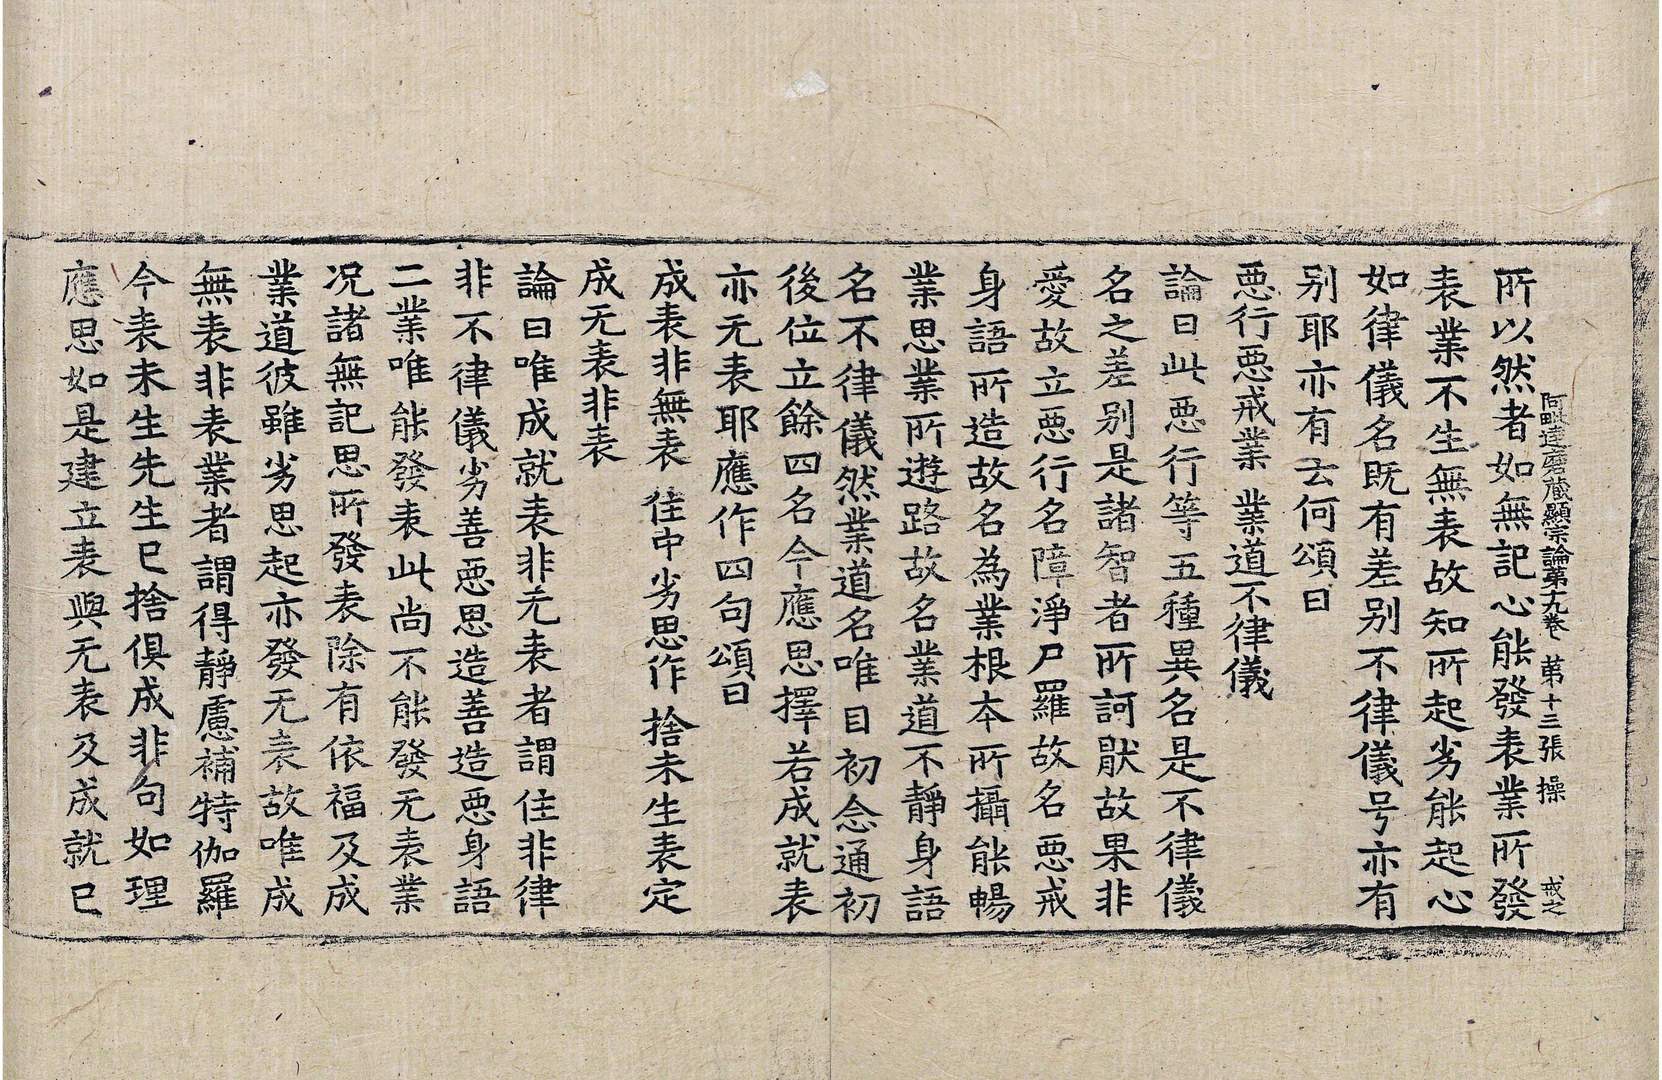 阿毗達磨藏顯宗論第十九卷　第十三張　操　戒之
所以然者如無記心能發表業所發
表業不生無表故知所起劣能起心
如律儀名既有差别不律儀号亦有
别耶亦有云何頌曰
惡行惡戒業　業道不律儀
論曰此惡行等五種異名是不律儀
名之差别是諸智者所訶猒故果非
愛故立惡行名障淨尸羅故名惡戒
身語所造故名為業根本所攝能暢
業思業所遊路故名業道不靜身語
名不律儀然業道名唯目初念通初
後位立餘四名今應思擇若成就表
亦无表耶應作四句頌曰
成表非無表　住中劣思作　捨未生表定
成无表非表
論曰唯成就表非无表者謂住非律
非不律儀劣善惡思造善造惡身語
二業唯能發表此尚不能發无表業
况諸無記思所發表除有依福及成
業道彼雖劣思起亦發无表故唯成
無表非表業者謂得靜慮補特伽羅
今表未生先生已捨俱成非句如理
應思如是建立表與无表及成就已